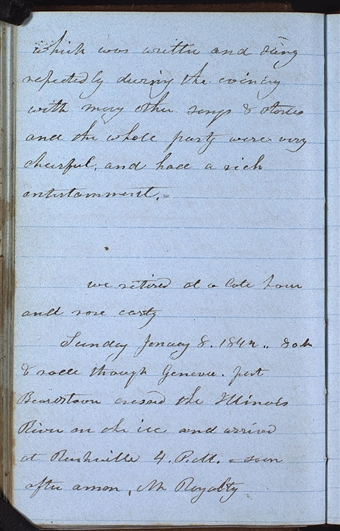 which was written and sung
repeatedly during the evening
with many other songs & stories
and the whole party were very
cheerful. and had a rich
entertainment.
we retired at a late hour
and rose early
Sunday January 8. 184
& rode through Geneva. past
Beardstown crossed the Illinois
River on the ice and arrived
at Rushville 4. P.M. soon
after Mr Royalty